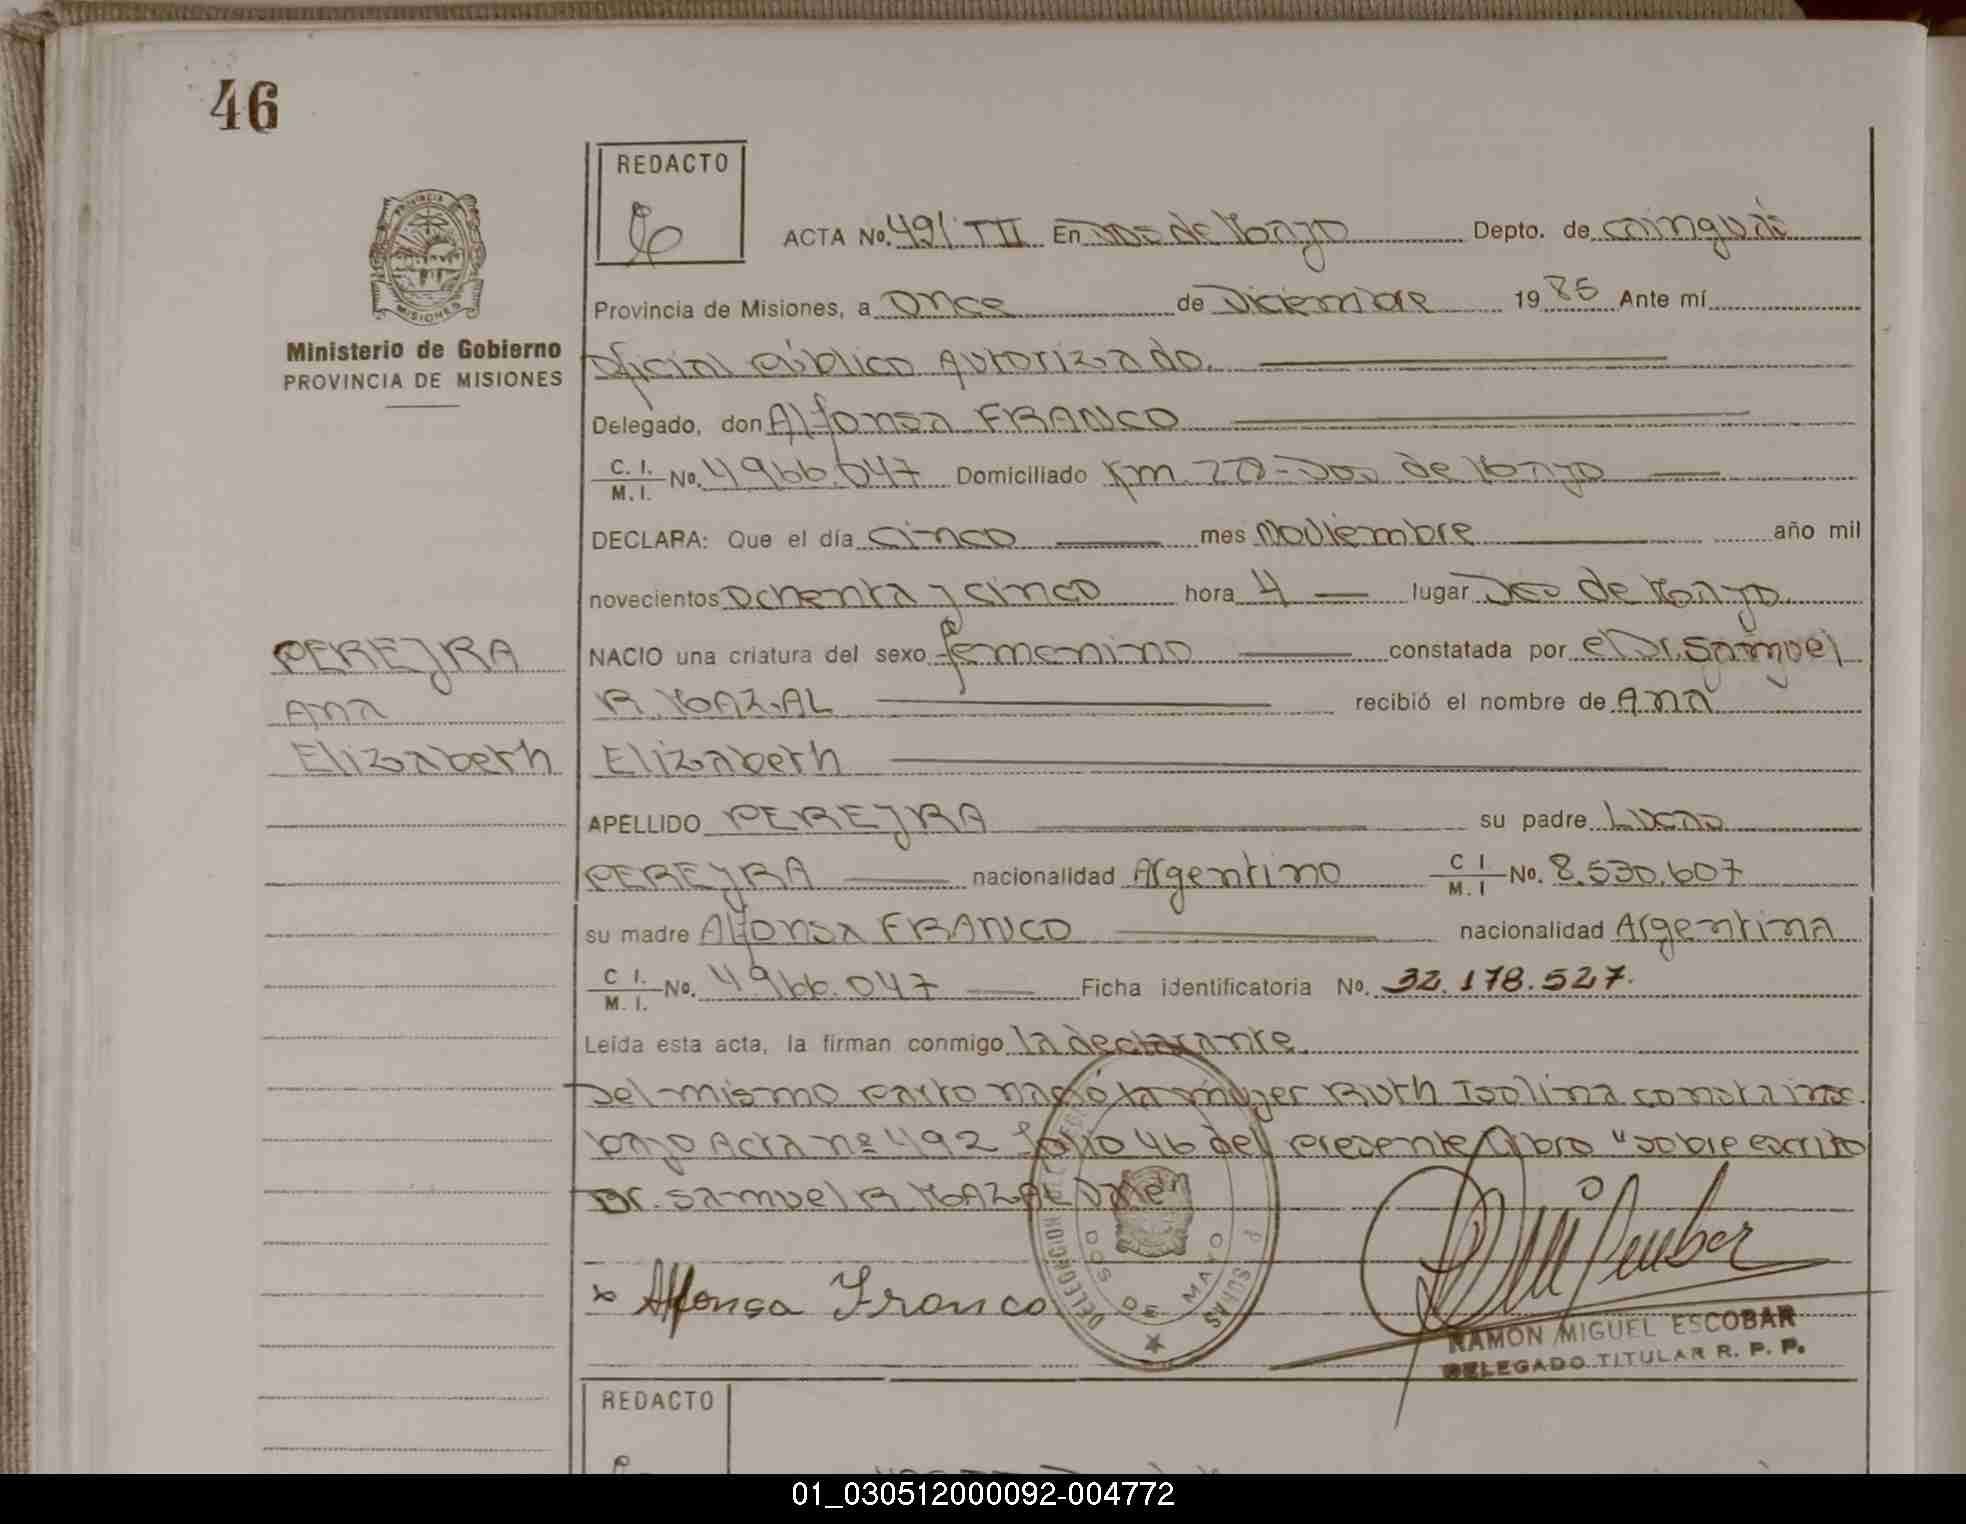 46
REDACTO
ACTA No. 491 TII En Dos de Mayo Depto. de Cainguás
Provincia de Misiones, a Once de Diciembre 1985 Ante mí
Ministerio de Gobierno
PROVINCIA DE MISIONES
Oficial Público Autorizado.
Delegado, don Alfonsa FRANCO
C. I. M. I. No. 4966.047 Domiciliado Km. 228-Dos de Mayo
DECLARA: Que el día Cinco mes Noviembre año mil
novecientos Ochenta y cinco hora 4 lugar Dos de Mayo
PEREYRA
Ana
Elizabeth
NACIO una criatura del sexo femenino constatada por el Dr. Samuel
R. MAZAL recibió el nombre de Ana
Elizabeth
APELLIDO PEREYRA su padre Lucao
PEREYRA nacionalidad Argentino C I M. I No. 8.530.607
su madre Alfonsa FRANCO nacionalidad Argentina
C I. M. I. No. 4966.047 Ficha identificatoria No. 32.178.527.
Leída esta acta, la firman conmigo la declarante
Del mismo parto nació la mujer Ruth Isolina consta ins.
bajo Acta nº 492 folio 46 del presente libro "sobre escrito
Dr. Samuel R. MAZAL
Alfonsa Franco
DELEGACION
DOS DE MAYO
RAMON MIGUEL ESCOBAR
DELEGADO TITULAR R. P. P.
REDACTO
01_030512000092-004772